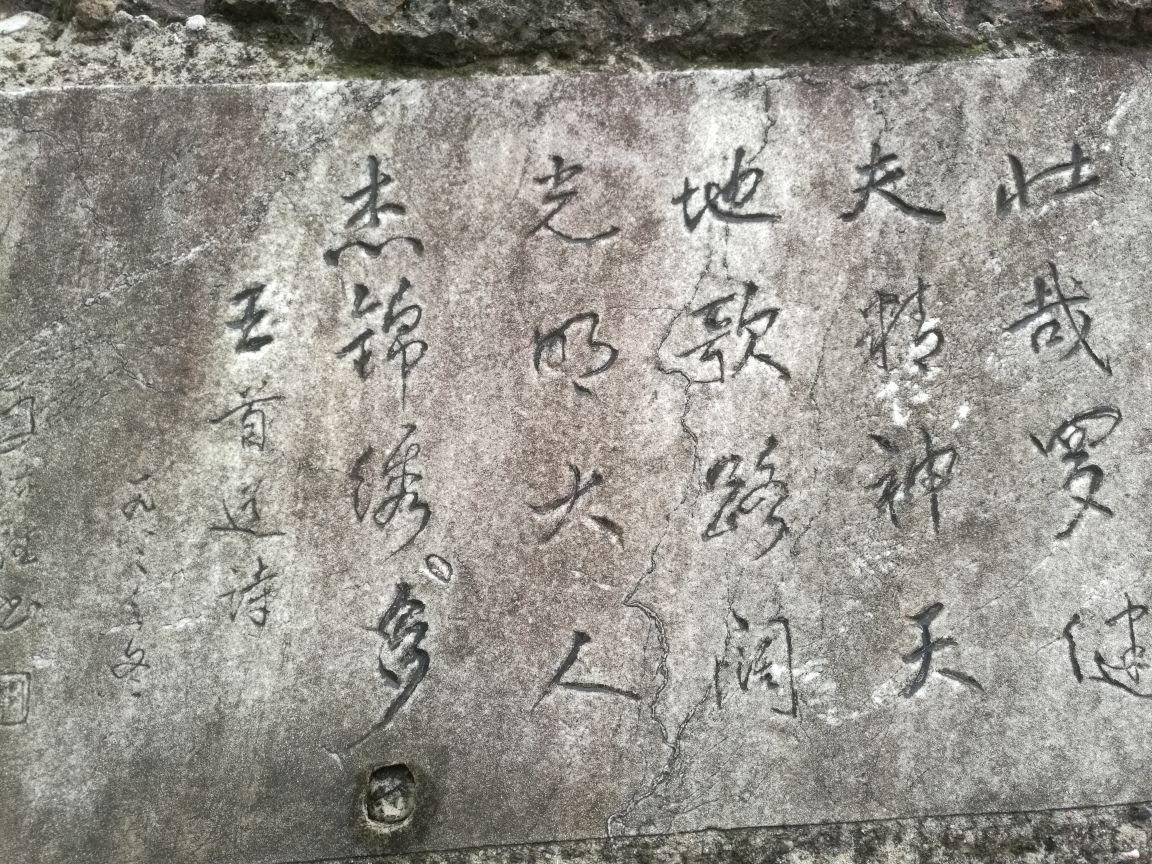 壮哉罗健
夫精神天
地歌路阔
光明大人
杰锦绣多
王首道诗
一九八八年冬
书